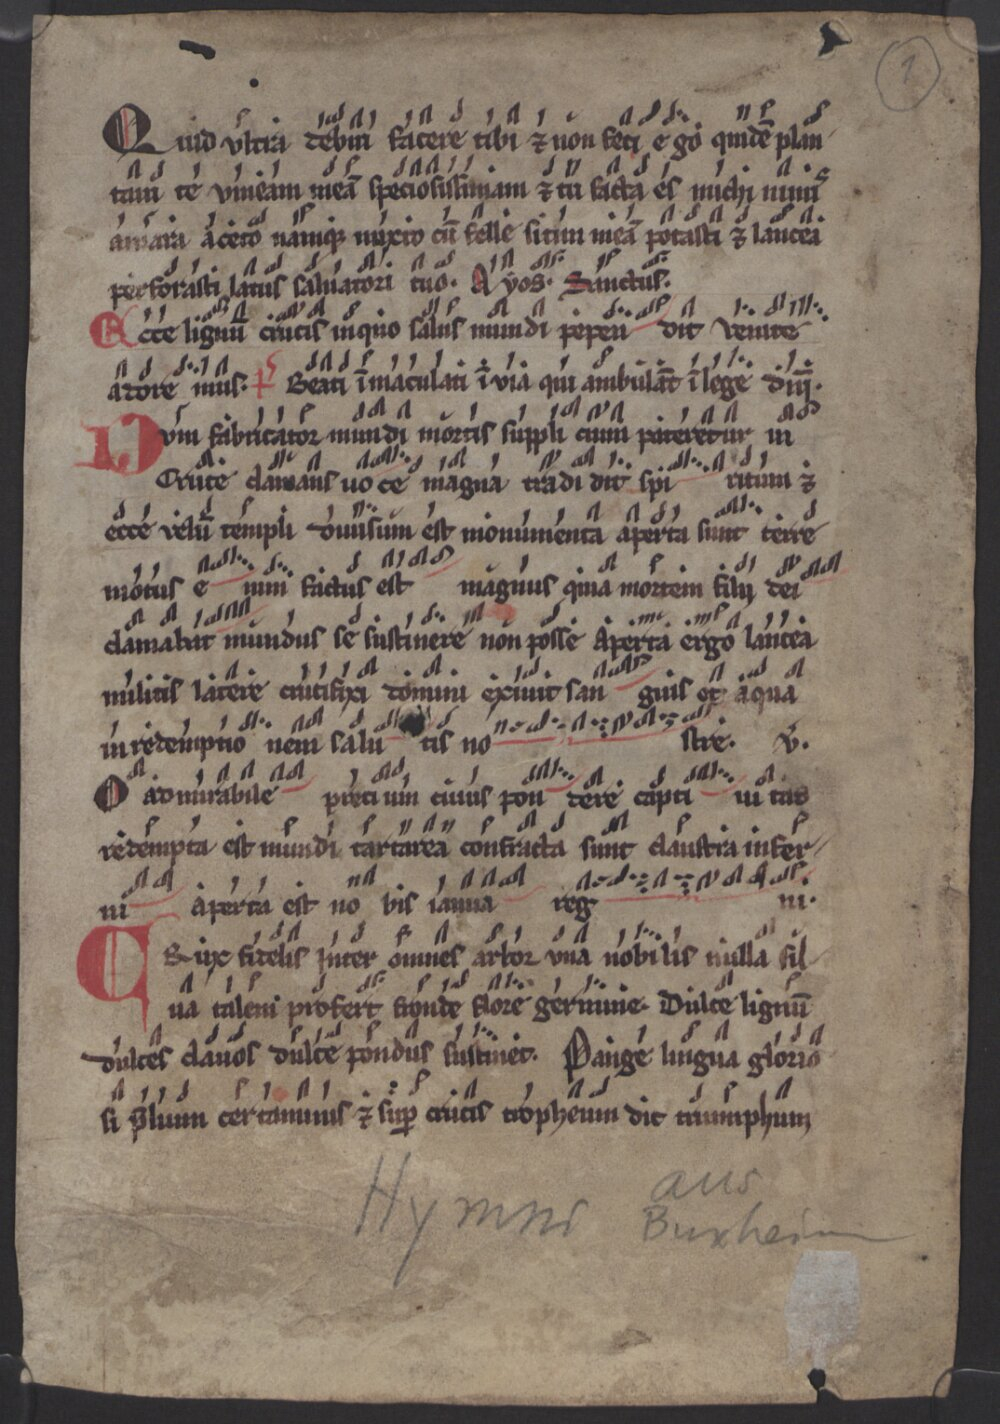 1
Quid ultra debui facere tibi ⁊ non feci ego quidē plan
taui te vineam meā speciosissimam ⁊ tu facta es michi nimis
amara aceto namq mixto cū felle sitim meā potasti ⁊ lancea
perforasti latus saluatori tuo. A yos. Sanctus.
Ecce lignū crucis in quo salus mundi pepen dit venite
adore mus. Beati īmaculati ī via qui ambulāt ī lege dn̄i.
Dum fabricator mundi mortis suppli cium pateretur in
Cruce clamans uo ce magna tradi dit spi ritum ⁊
ecce velū templi diuisum est monumenta aperta sunt terre
motus e nim factus est magnus quia mortem filij dei
clamabat mundus se sustinere non posse Aperta ergo lancea
militis latere crucifixi domini exiuit san guis et aqua
in redemptio nem salu tis no stre. v̄.
O admirabile preci um cuius pon dere capti ui tas
redempta est mundi tartarea confracta sunt claustra infer
ni aperta est no bis ianua reg ni.
Crux fidelis Inter omnes arbor vna nobilis nulla sil
ua talem profert fronde flore germine. Dulce lignū
dulces clauos dulce pondus sustinet. Pange lingua glorio
si p̄lium certaminis ⁊ sup crucis tropheum dic triumphum
Hymni aus
Buxheim